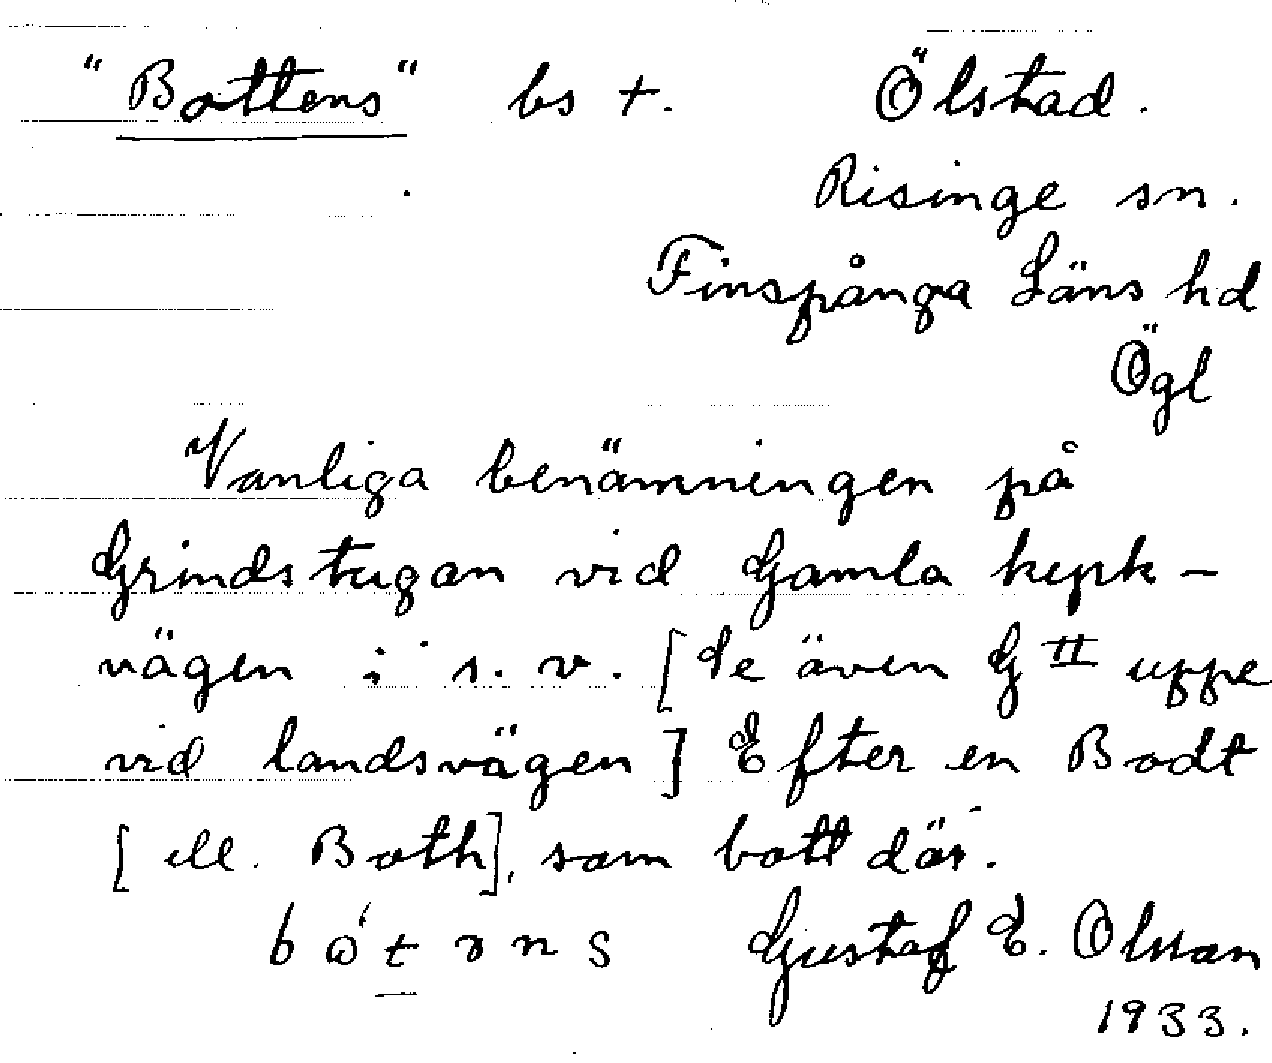 "Bottens" bs +. Ölstad.
Risinge sn.
Finspånga Läns hd
Ögl
Vanliga benämningen på
Grindstugan vid Gamla kyrk-
vägen i s.v. [Se även G II uppe
vid landsvägen] Efter en Bodt
[ell. Both], som bott där.
Gustaf E. Olsson
1933.